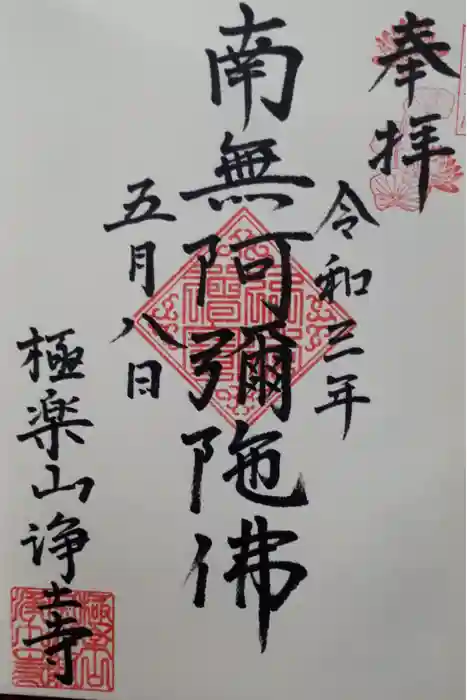 奉拝
令和三年
南無阿彌陀佛
五月八日
極楽山浄土寺